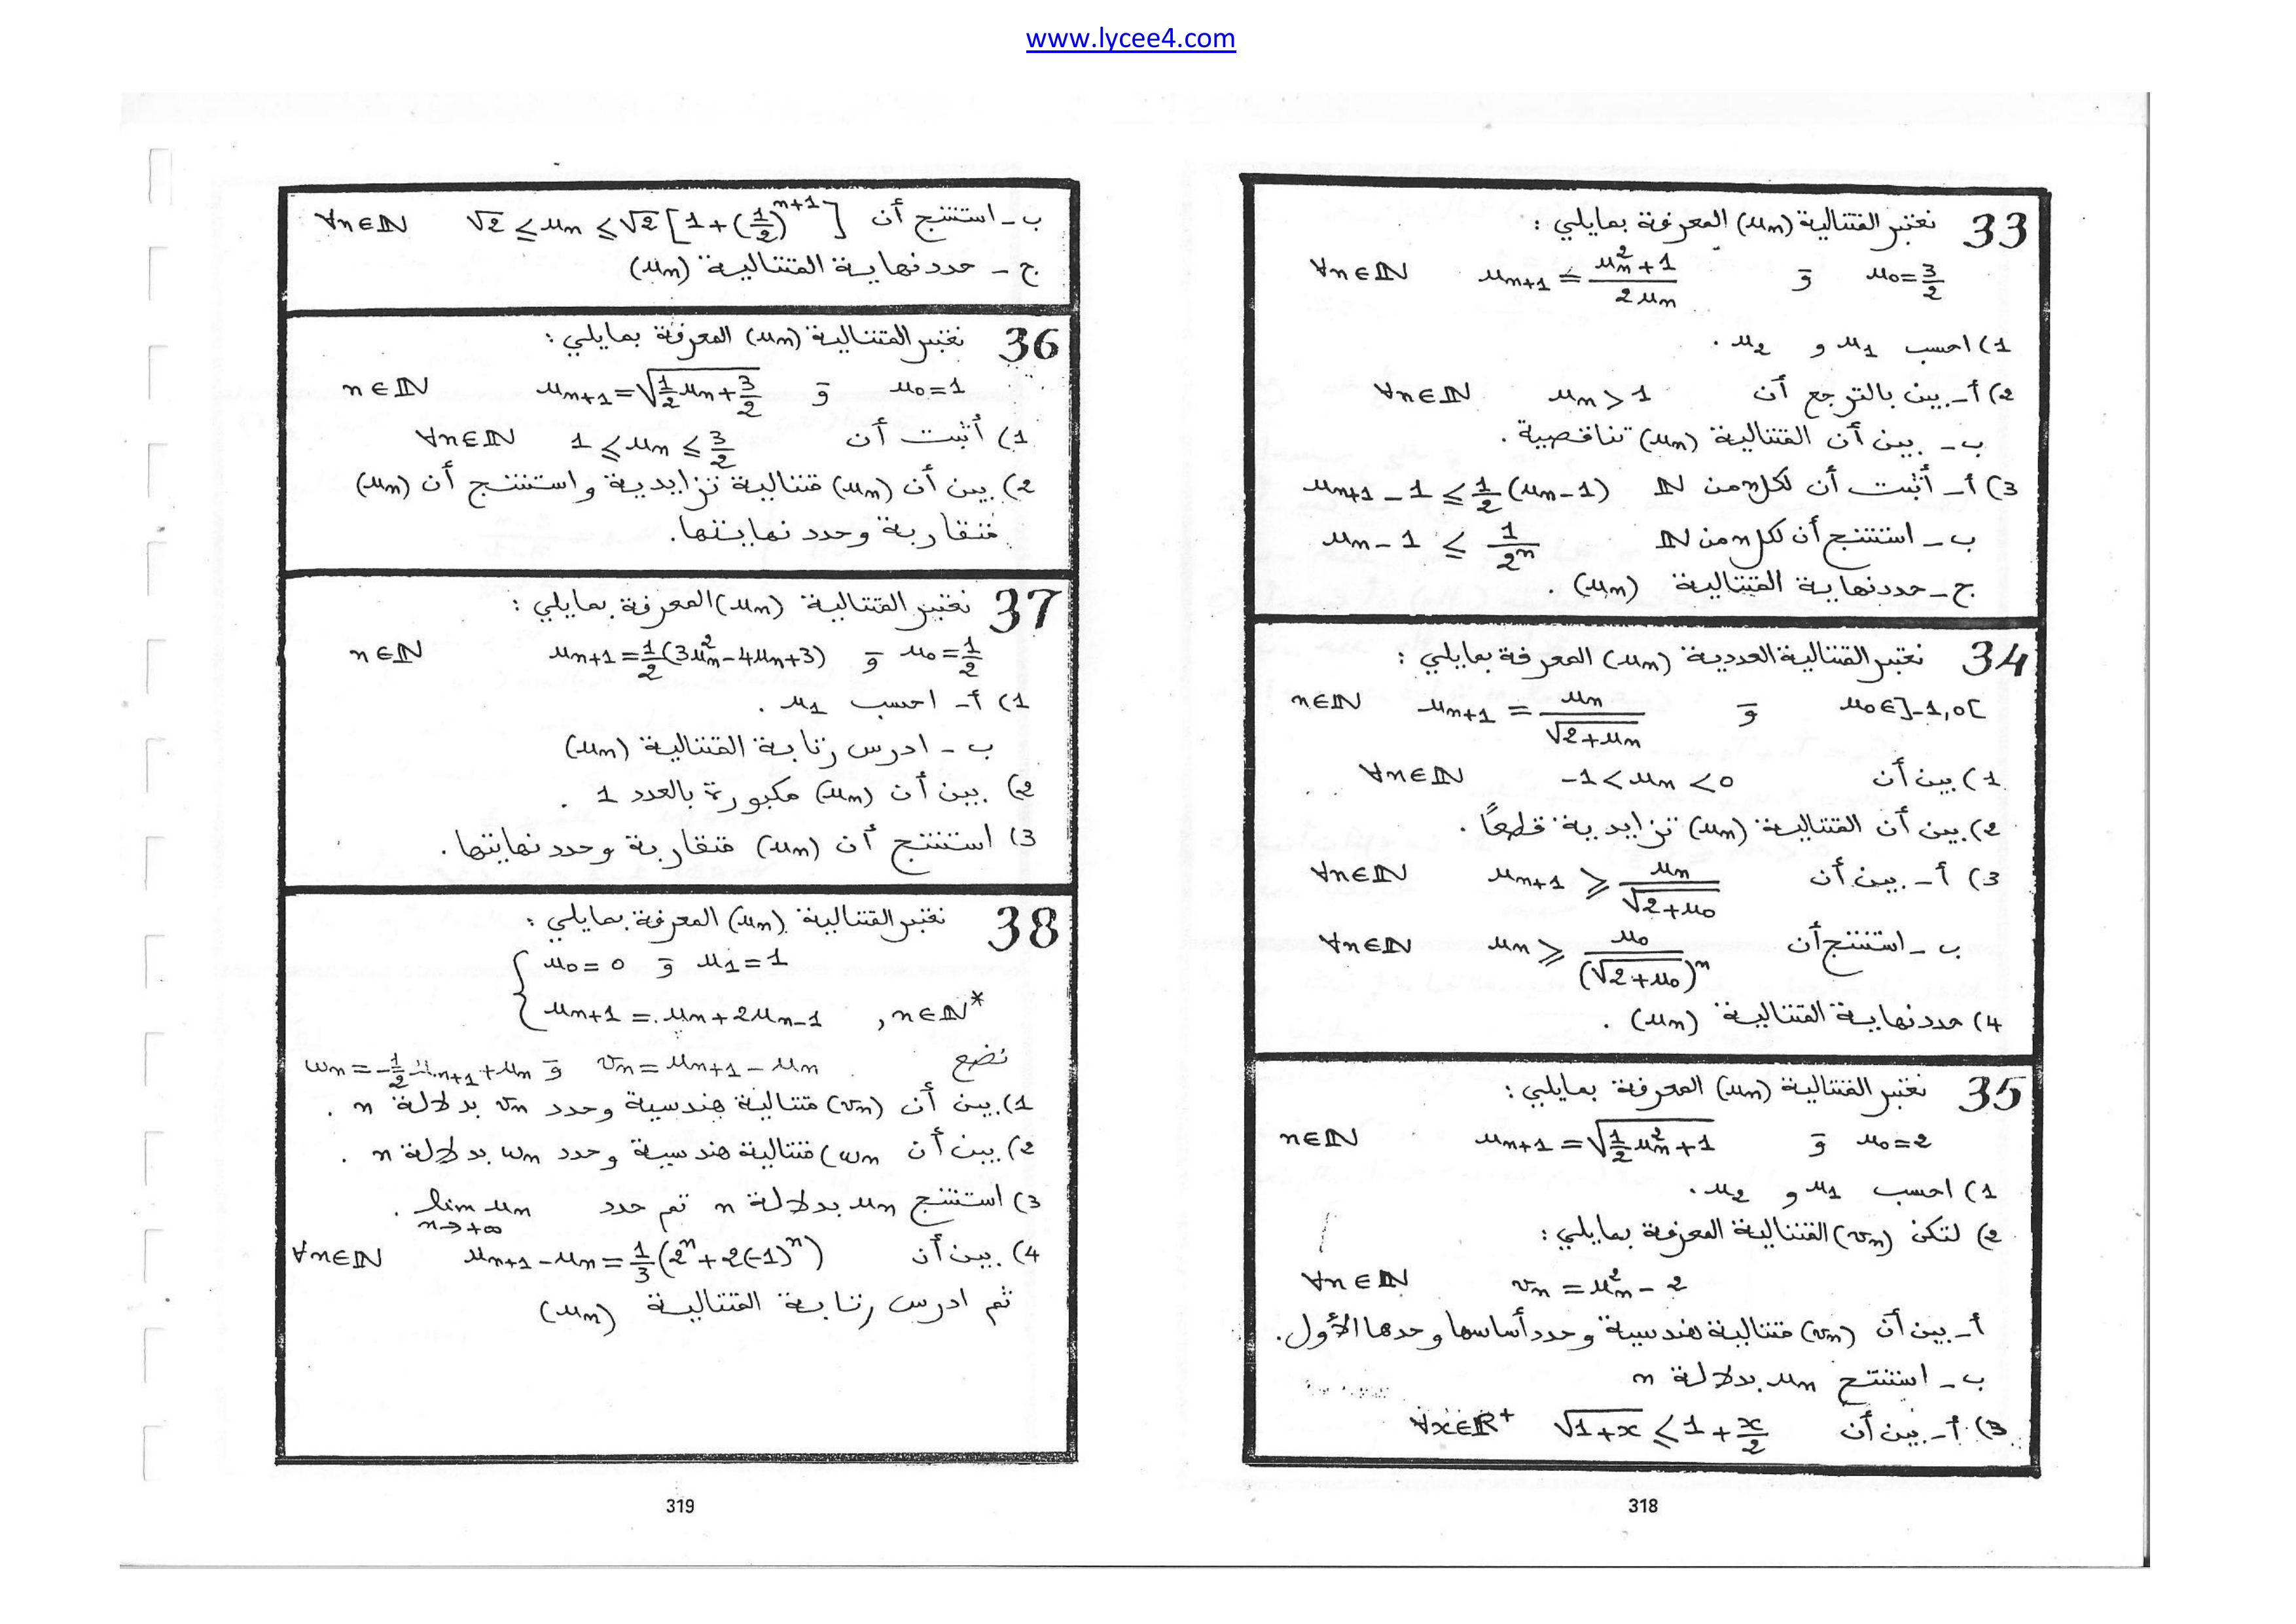 www.lycee4.com
33 نعتبر المتتالية (uₙ) المعرفة بمايلي :
u₀ = 3/2 و uₙ₊₁ = (uₙ² + 1)/(2uₙ) ∀n∈ℕ
1) احسب u₁ و u₂ .
2) أ- بين بالترجع أن uₙ > 1 ∀n∈ℕ
ب- بين أن المتتالية (uₙ) تناقصية .
3) أ- أثبت أن لكل n من ℕ uₙ₊₁ - 1 ≤ 1/2 (uₙ - 1)
ب- استنتج أن لكل n من ℕ uₙ - 1 ≤ 1/2ⁿ
ج- حدد نهاية المتتالية (uₙ) .
34 نعتبر المتتالية العددية (uₙ) المعرفة بمايلي :
u₀ ∈ ]-1,0[ و uₙ₊₁ = uₙ/√(2+uₙ) n∈ℕ
1) بين أن -1 < uₙ < 0 ∀n∈ℕ
2) بين أن المتتالية (uₙ) تزايدية قطعاً .
3) أ- بين أن uₙ₊₁ ≥ uₙ/√(2+u₀) ∀n∈ℕ
ب- استنتج أن uₙ ≥ u₀/(√(2+u₀))ⁿ ∀n∈ℕ
4) حدد نهاية المتتالية (uₙ) .
35 نعتبر المتتالية (uₙ) المعرفة بمايلي :
u₀ = 2 و uₙ₊₁ = √(1/2 uₙ² + 1) n∈ℕ
1) احسب u₁ و u₂ .
2) لتكن (vₙ) المتتالية المعرفة بمايلي :
vₙ = uₙ² - 2 ∀n∈ℕ
أ- بين أن (vₙ) متتالية هندسية وحدد أساسها وحدها الأول .
ب- استنتج uₙ بدلالة n
3) أ- بين أن √(1+x) ≤ 1 + x/2 ∀x∈ℝ⁺
318
ب- استنتج أن √2 ≤ uₙ ≤ √2 [1 + (1/2)ⁿ⁺¹] ∀n∈ℕ
ج- حدد نهاية المتتالية (uₙ)
36 نعتبر المتتالية (uₙ) المعرفة بمايلي :
u₀ = 1 و uₙ₊₁ = √(1/2 uₙ + 3/2) n∈ℕ
1) أثبت أن 1 ≤ uₙ ≤ 3/2 ∀n∈ℕ
2) بين أن (uₙ) متتالية تزايدية واستنتج أن (uₙ)
متقاربة وحدد نهايتها .
37 نعتبر المتتالية (uₙ) المعرفة بمايلي :
u₀ = 1/2 و uₙ₊₁ = 1/2 (3uₙ² - 4uₙ + 3) n∈ℕ
1) أ- احسب u₁ .
ب- ادرس رتابة المتتالية (uₙ)
2) بين أن (uₙ) مكبورة بالعدد 1 .
3) استنتج أن (uₙ) متقاربة وحدد نهايتها .
38 نعتبر المتتالية (uₙ) المعرفة بمايلي :
u₀ = 0 و u₁ = 1
uₙ₊₁ = uₙ + 2uₙ₋₁ , n∈ℕ*
نضع vₙ = uₙ₊₁ - uₙ و wₙ = -1/2 uₙ₊₁ + uₙ
1) بين أن (vₙ) متتالية هندسية وحدد vₙ بدلالة n .
2) بين أن wₙ) متتالية هندسية وحدد wₙ بدلالة n .
3) استنتج uₙ بدلالة n تم حدد lim uₙ n→+∞ .
4) بين أن uₙ₊₁ - uₙ = 1/3 (2ⁿ + 2(-1)ⁿ) ∀n∈ℕ
ثم ادرس رتابة المتتالية (uₙ)
319